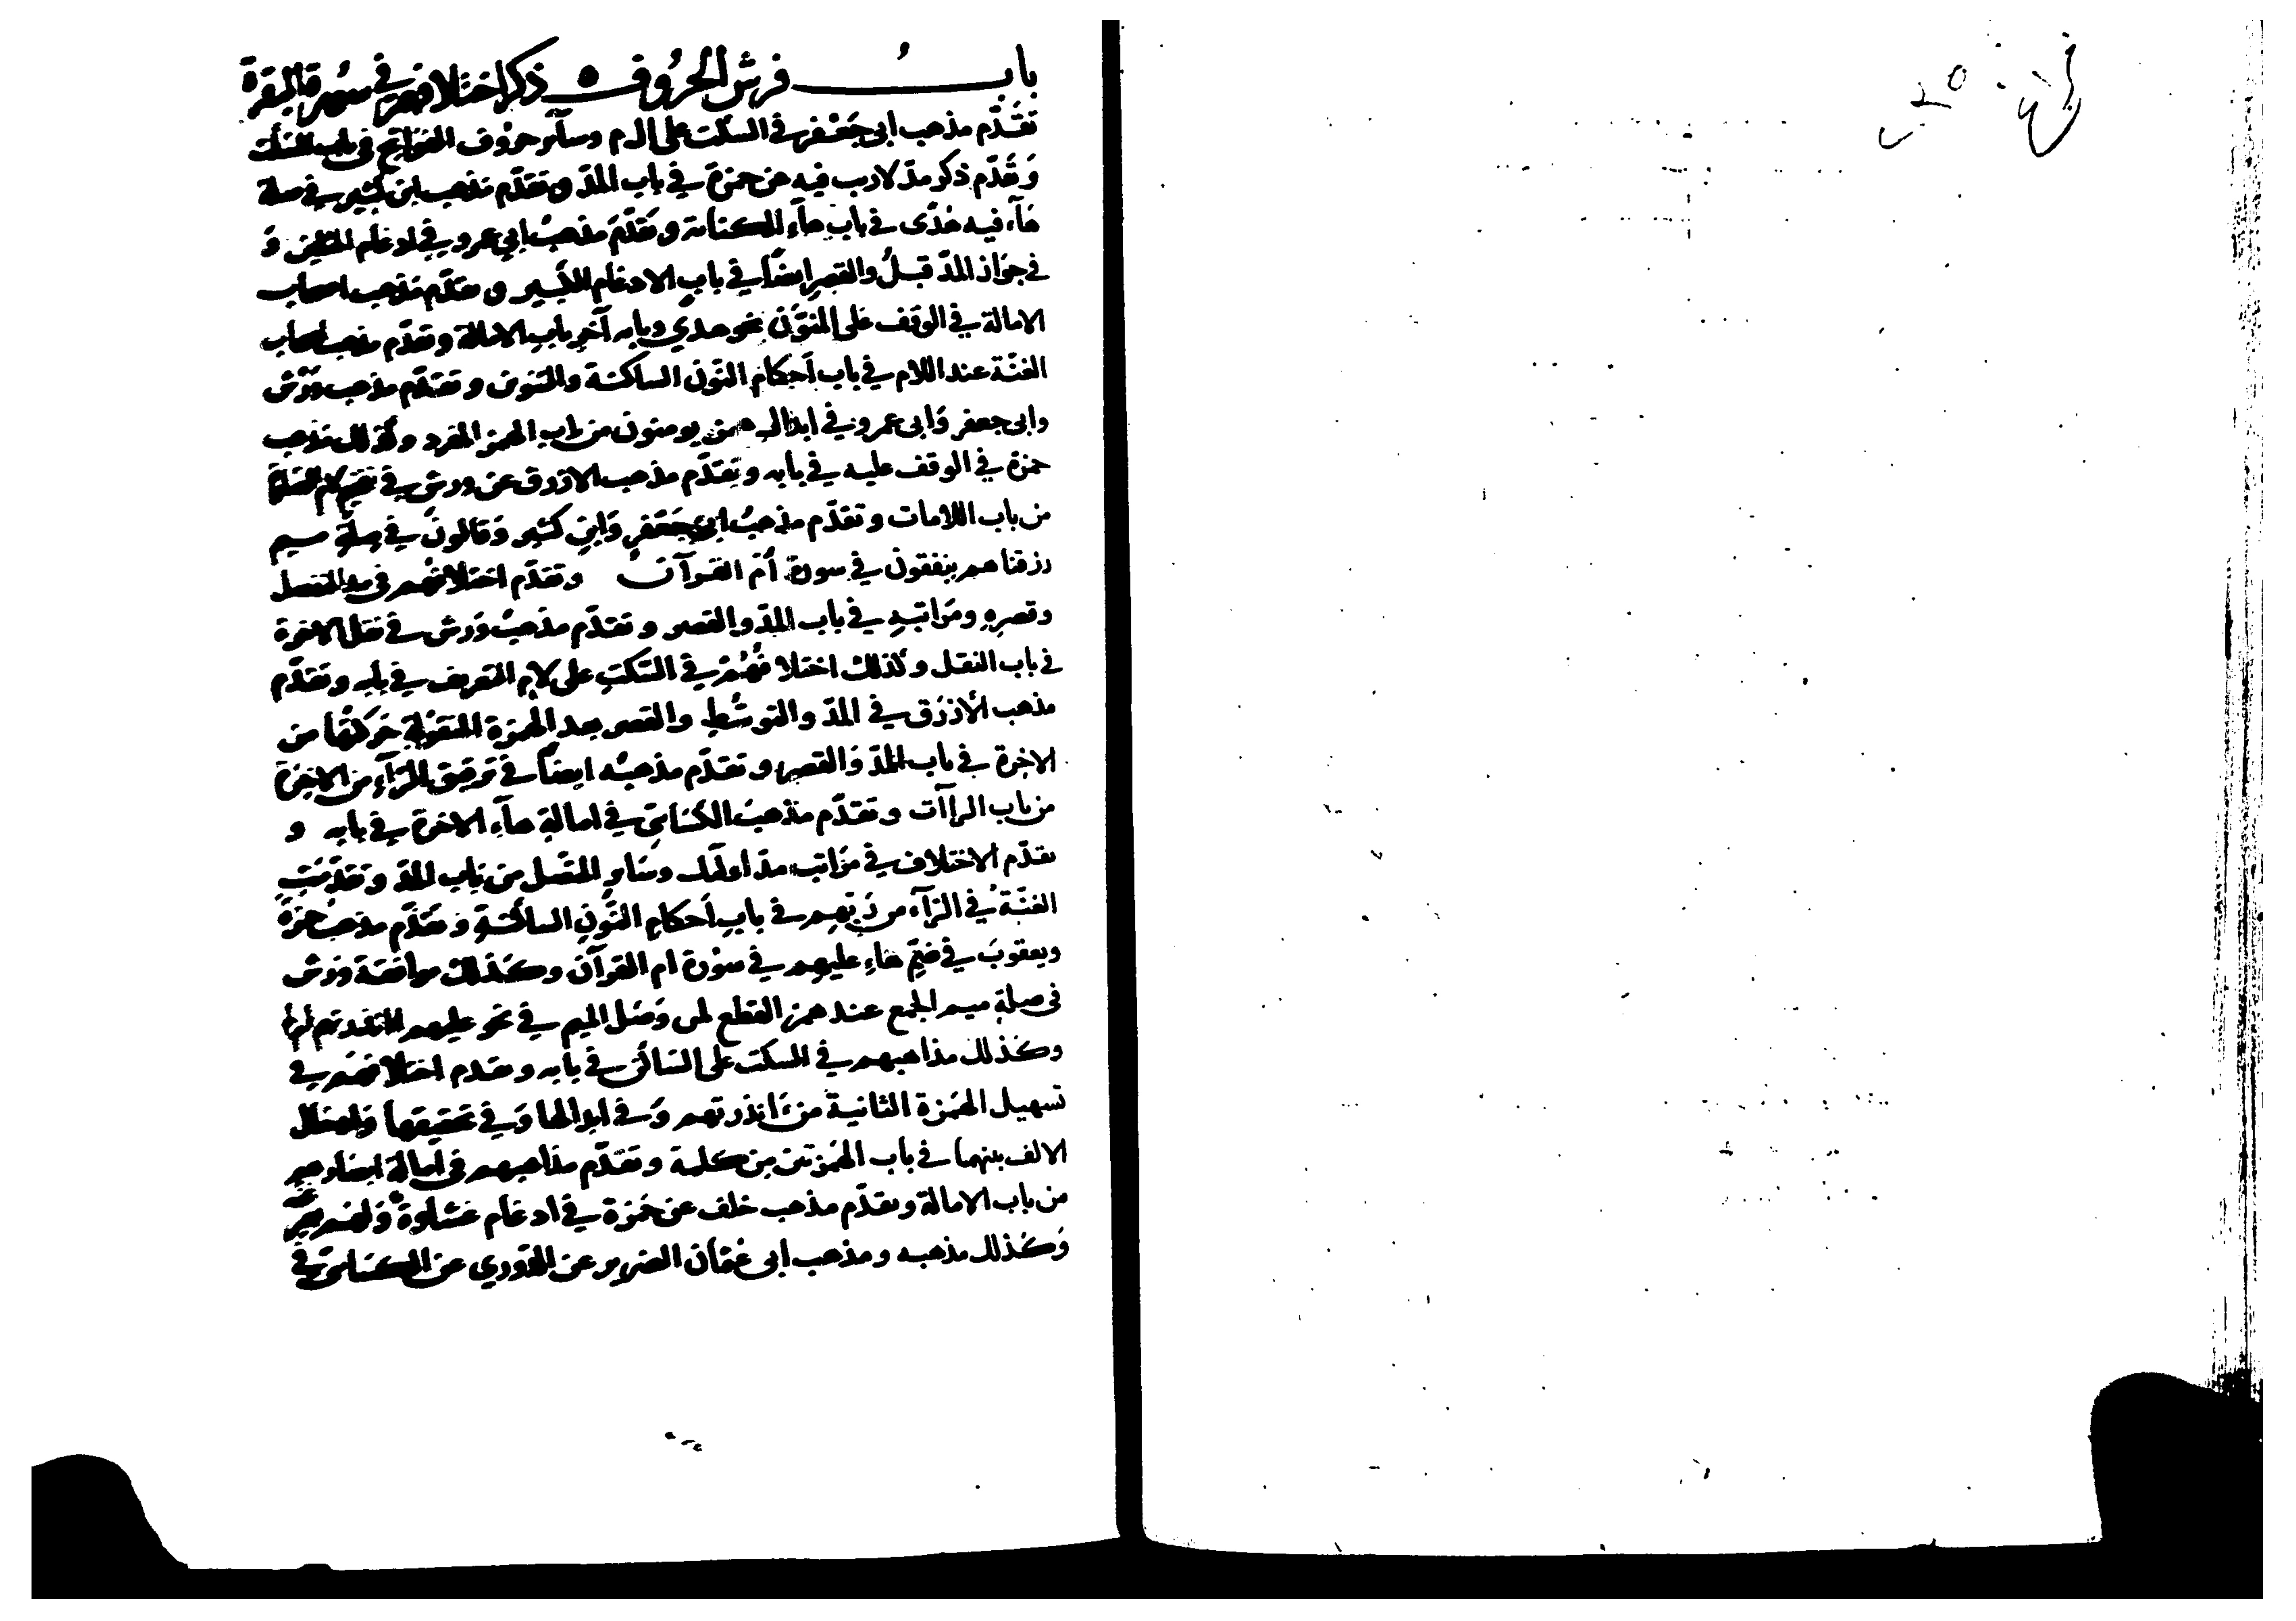 باب فرش الحروف ه ذكر اختلافهم في سورة البقرة
تقدّم مذهب ابي جعفر في السكت على الم وسائر حروف الفواتح في باب السكت
وَتقدّم ذكر مدّ لا ريب فيه عن حمزة في باب المدّ وتقدّم مذهب ابن كثير في صلة
هآء فيه هدًى في باب هآء الكناية وتقدّم مذهب ابي عمرو في ادغام المثلين وَ
في جواز المدّ قبلُ والقصر ايضاً في باب الادغام الكبير وتقدّم مذهب اصحاب
الامالة في الوقف على المنوّن نحو هدًى وبابه آخر باب الامالة وتقدّم مذهب اصحاب
الغنّة عند اللام في باب أحكام النّون الساكنة والتنوين وتقدّم مذهب ورش
وابي جعفر وَابي عمرو في ابدال همز يومنون من باب الهمز المفرد وكذلك مذهب
حمزة في الوقف عليه في بابه وتقدّم مذهب الازرق عن ورش في تفخيم لام الصلاة
من باب اللامات وتقدّم مذهبُ ابي جعفر وَابن كثير وَقالون في صلة ميم
رزقناهم ينفقون في سورة أم القرآن وتقدّم اختلافهم في مد المنفصل
وقصرِهِ ومَراتبِهِ في باب المدّ والقصر وتقدّم مذهبُ وَرش في نقل الاخرة
في باب النقل وكذلك اختلافهُم في السّكت على لام التعريف في بابه وتقدّم
مذهب الأزرَق في المدّ والتوسُّط والقصر بعد الهمزة المنقولة حَركتُها من
الاخرة في باب المدّ وَالقصر وتقدّم مذهبُه ايضاً في ترقيق الرّآء من الاخرة
من باب الراآت وتقدّم مذهبُ الكسائي في امالة هآء الاخرة في بابه و
تقدّم الاختلاف في مَراتب مدّ اولئك وسَائر المتّصل من باب المدّ وتقدّمَتِ
الغنّةُ في الرّآء من رَبّهم في باب أحكام النّون السّاكنة وَتقدّم مذهب حمزة
ويعقوبَ في ضمِّ هَاءِ عليهم في سورة ام القرآن وكذلك موافقة ورش
في صلة ميم الجمع عند همز القطع لمن وَصَل الميم في نحو عليهم أانذرتهم ام
وكذلك مذاهبهم في السكت على السّاكن في بابه وتقدم اختلافهم في
تسهيل الهمزة الثانية من ءَانذرتهم وَفي ابدالها وَفي تحقيقها وَادخال
الالف بينهما في باب الهمزتين من كلمة وتقدّم مذاهبهم في امالة ابصارهم
من باب الامالة وتقدّم مذهب خلف عن حَمزة في ادغام غشاوةٌ وَلهم
وَكذلك مذهبه ومذهب ابي عثمان الضرير عن الدّوري عن الكسائي في